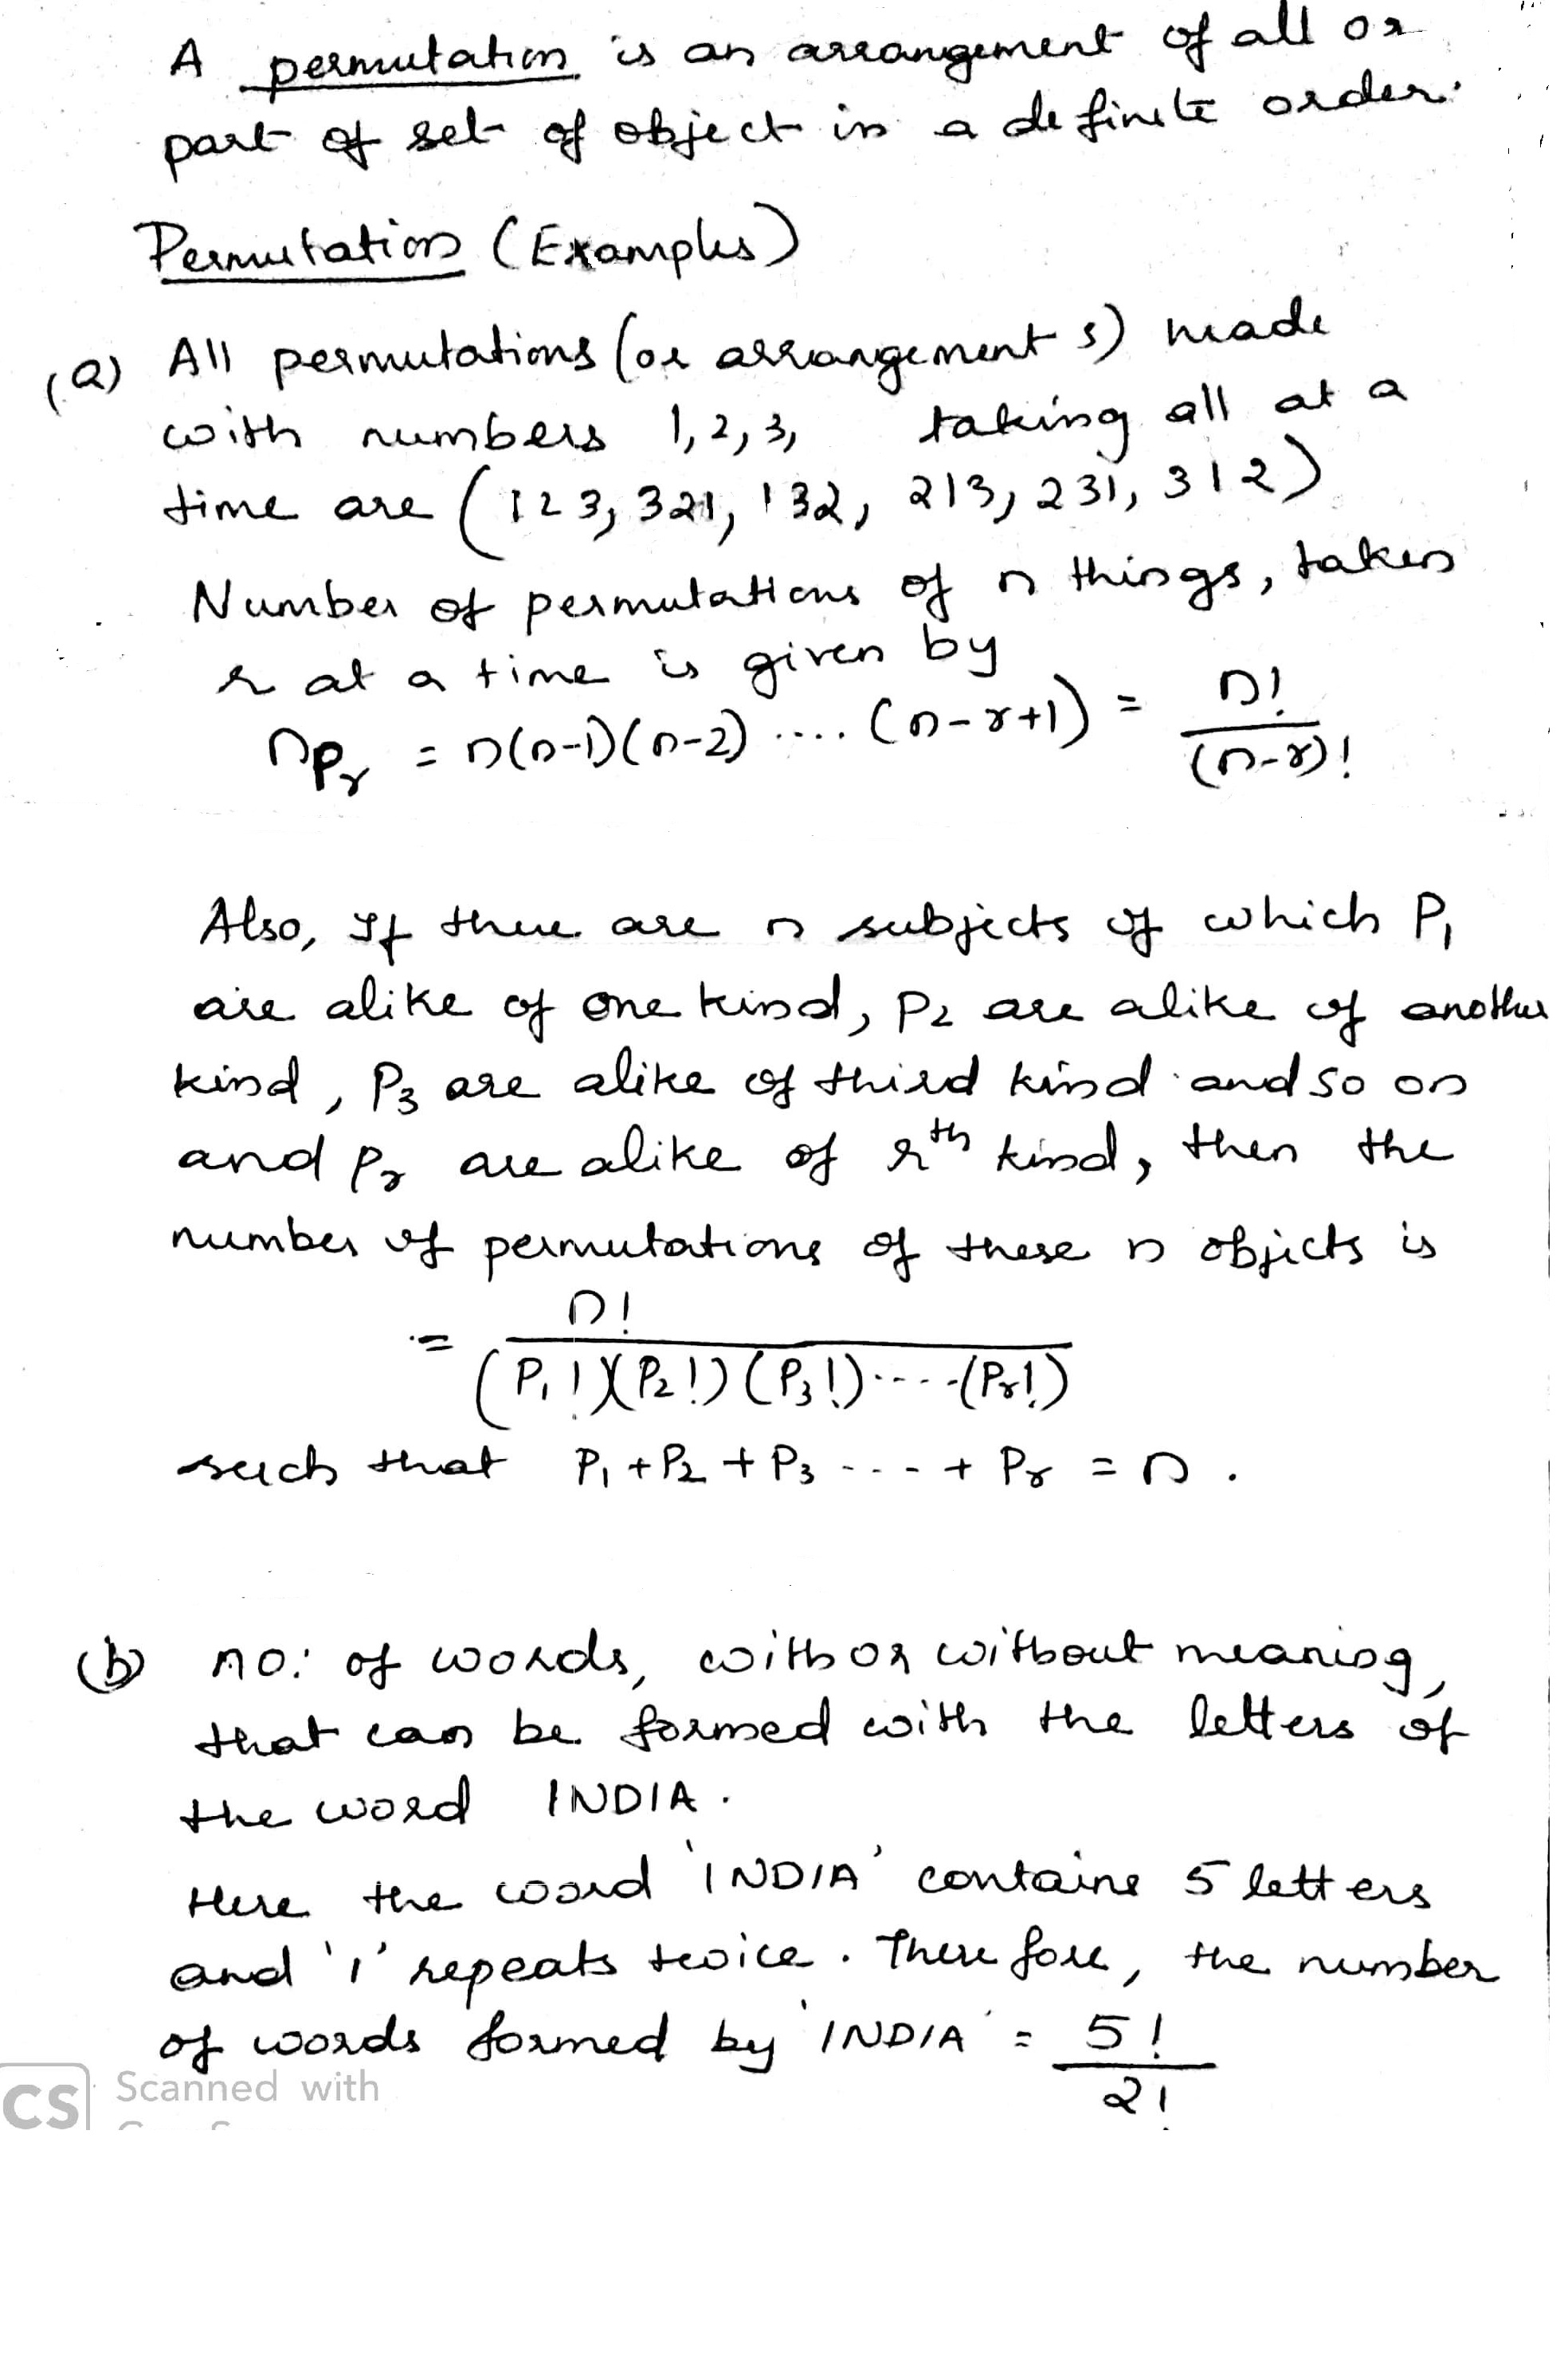 A permutation is an arrangement of all or
part of set of object in a definite order.
Permutation (Examples)
(a) All permutations (or arrangements) made
with numbers 1, 2, 3, taking all at a
time are (123, 321, 132, 213, 231, 312)
Number of permutations of n things, taken
r at a time is given by
nPr = n(n-1)(n-2) .... (n-r+1) = n!/(n-r)!
Also, If there are n subjects of which P1
are alike of one kind, P2 are alike of another
kind, P3 are alike of third kind and so on
and Pr are alike of rth kind, then the
number of permutations of these n objects is
= n!/(P1!)(P2!)(P3!)....(Pr!)
such that P1 + P2 + P3 ---- + Pr = n.
(b) no: of words, with or without meaning,
that can be formed with the letters of
the word INDIA.
Here the word 'INDIA' contains 5 letters
and 'I' repeats twice. Therefore, the number
of words formed by 'INDIA' = 5!/2!
CS Scanned with